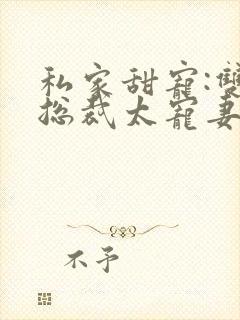 私家甜宠:雙
总裁太宠妻
不予